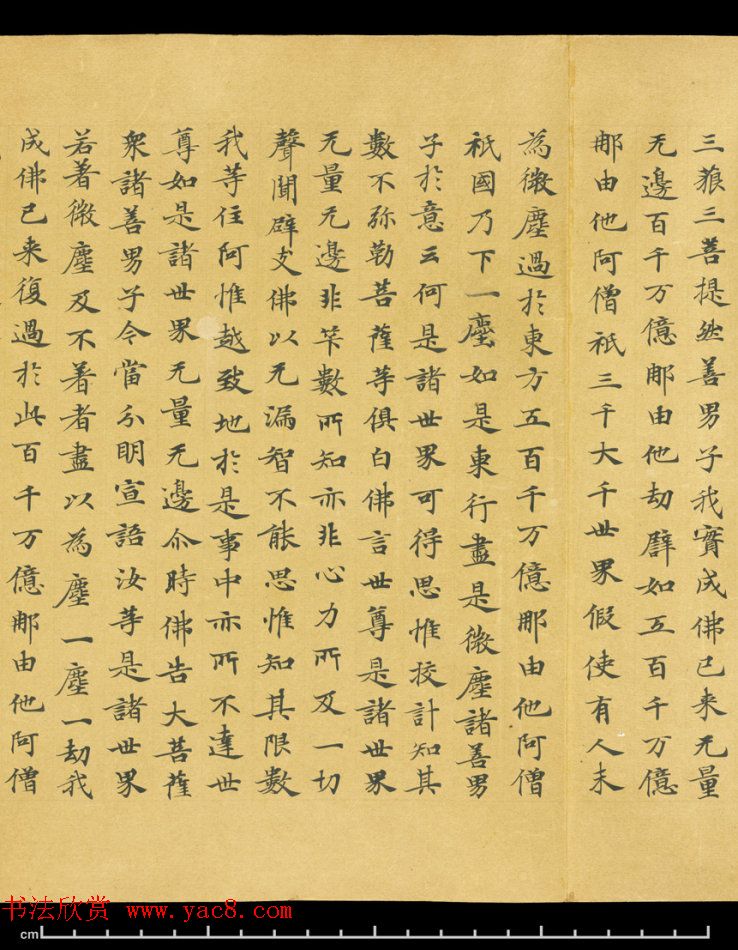 三藐三菩提然善男子我實成佛已来无量
无邊百千万億那由他劫辟如五百千万億
那由他阿僧祇三千大千世界假使有人末
為微塵過於東方五百千万億那由他阿僧
祇國乃下一塵如是東行盡是微塵諸善男
子於意云何是諸世界可得思惟挍計知其
數不弥勒菩薩等俱白佛言世尊是諸世界
无量无邊非竿數所知亦非心力所及一切
聲聞辟支佛以无漏智不能思惟知其限數
我等住阿惟越致地於是事中亦所不達世
尊如是諸世界无量无邊尒時佛告大菩薩
衆諸善男子今當分明宣語汝等是諸世界
若著微塵及不著者盡以為塵一塵一劫我
成佛已来復過於此百千万億那由他阿僧
书法欣赏 www.yac8.com
cm